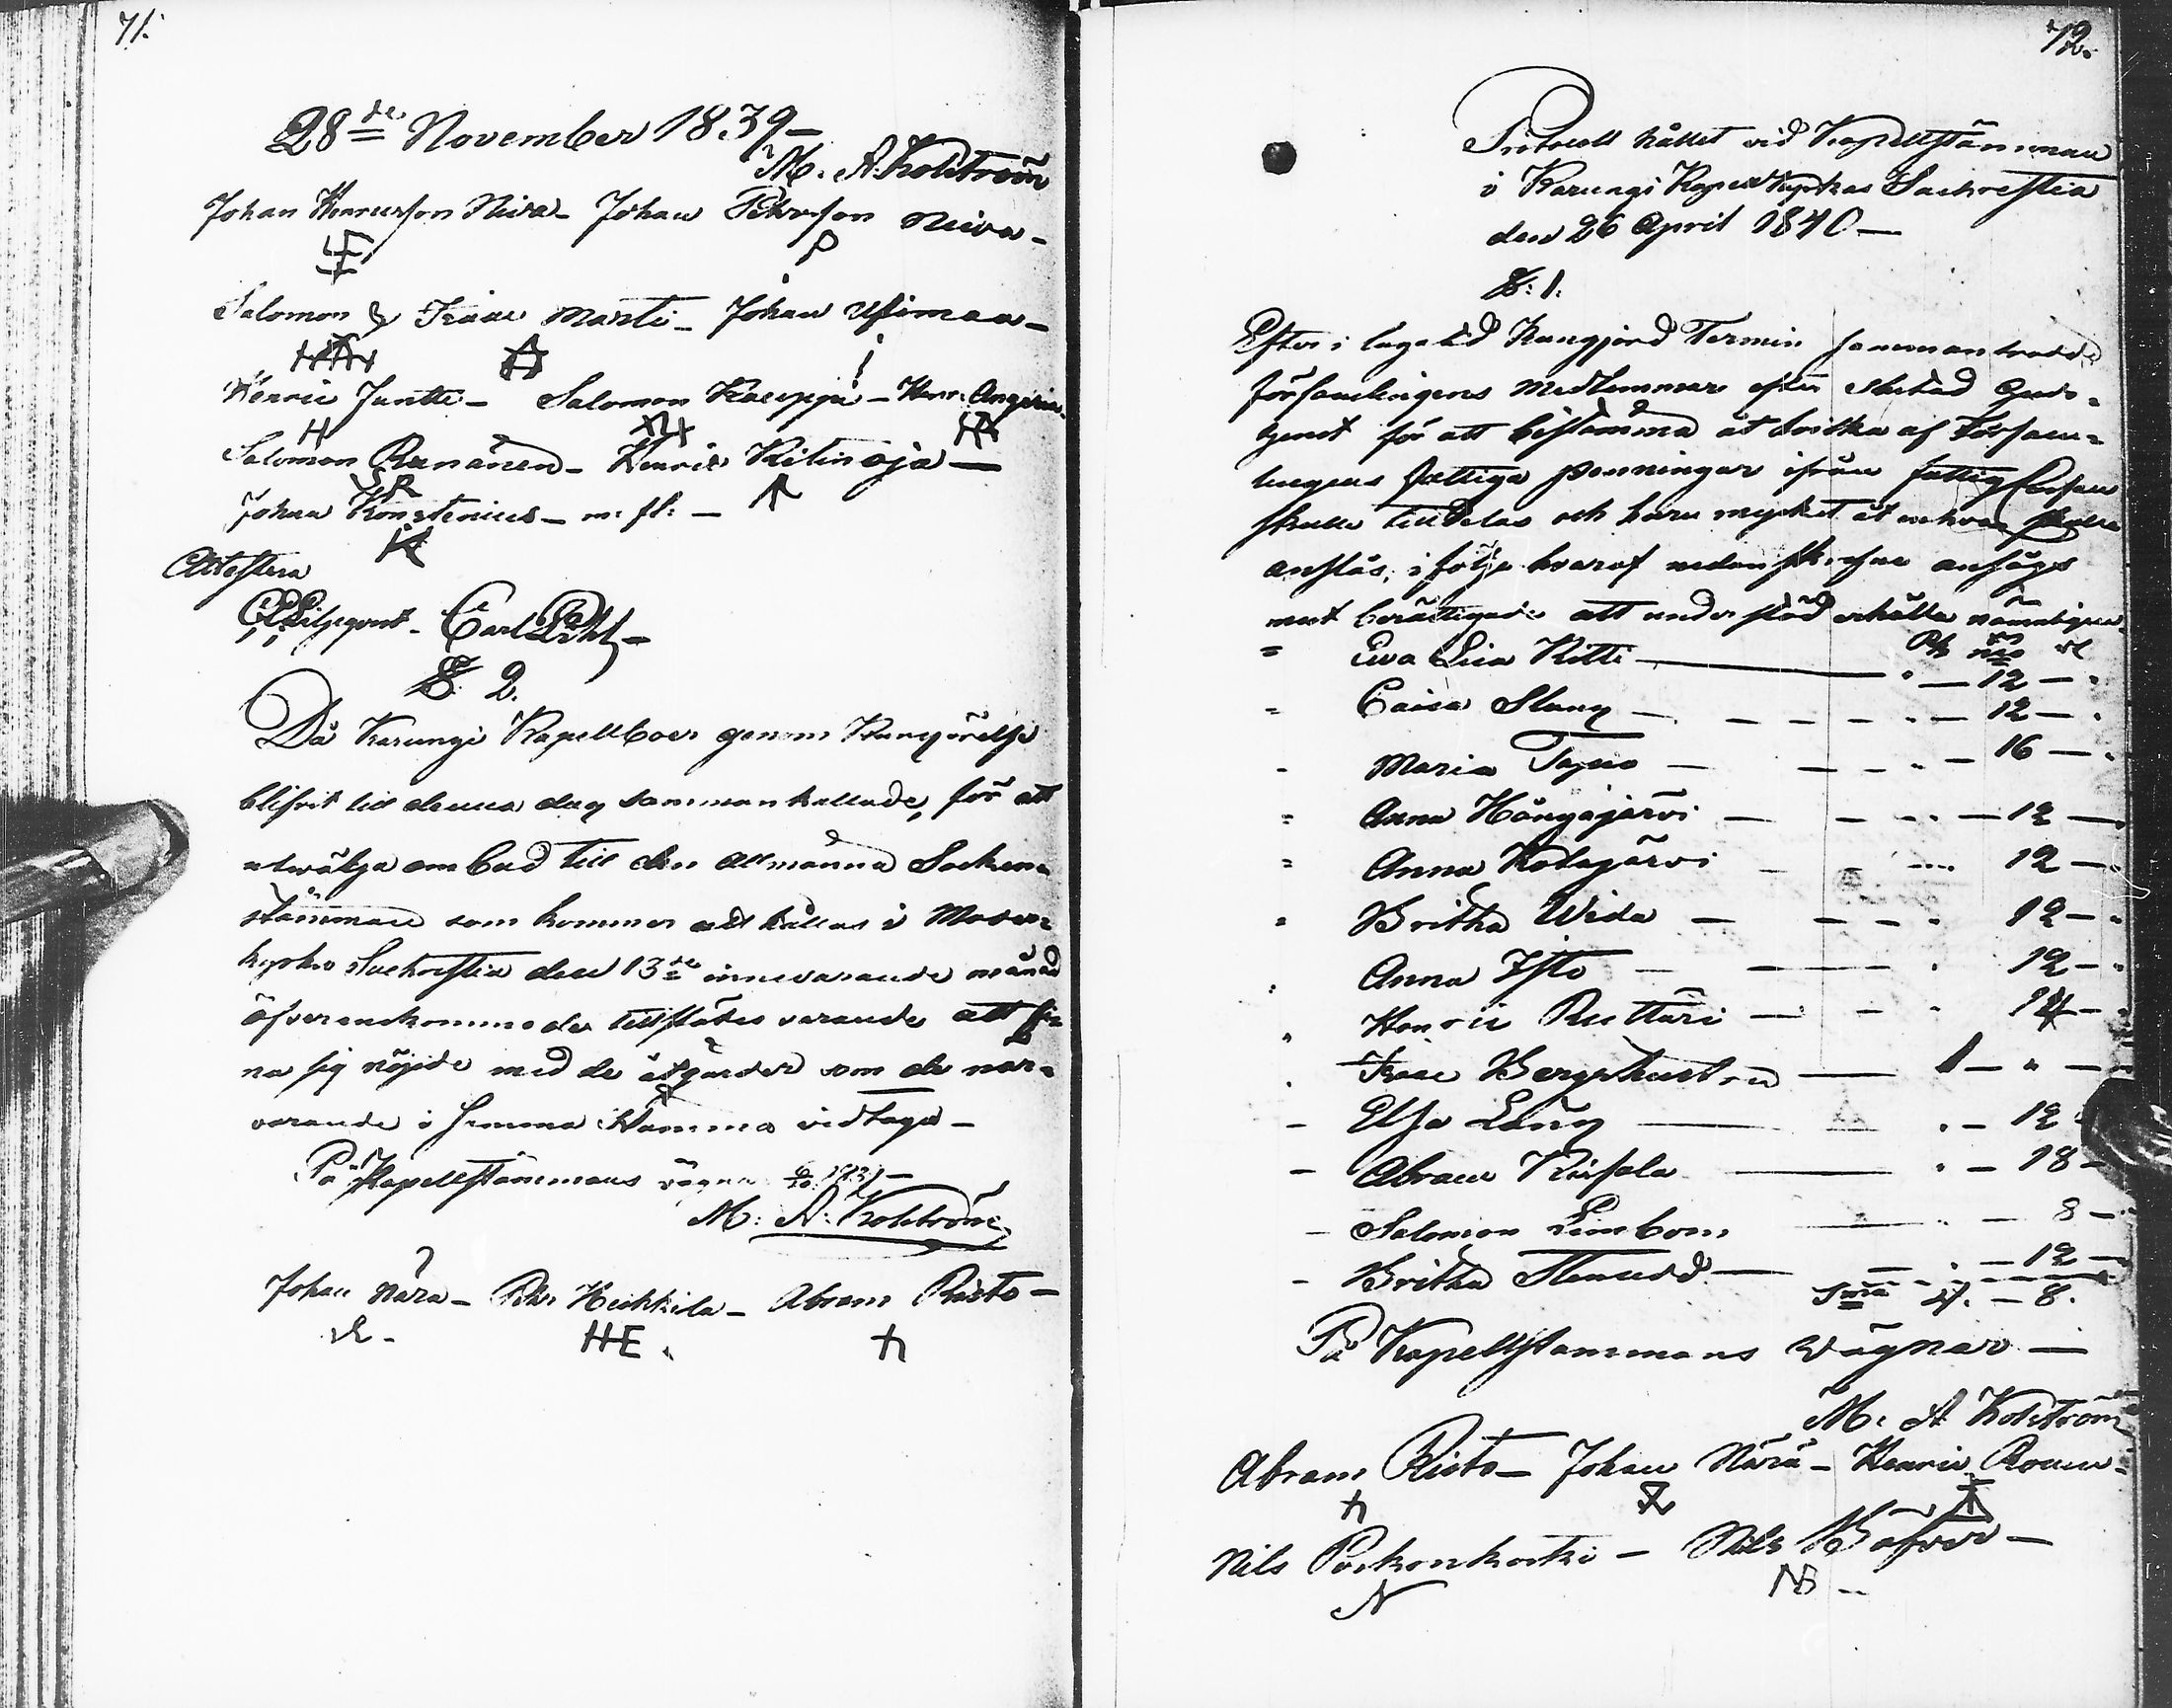 71.
28de November 1839–
M. A. Kolström
Johan Henricsson Niva – Johan Pehrsson Niva –
P
Salomon & Isaac Marti – Johan Usimaa –
Henric Juntti – Salomon Kauppi – Henr. Angeria
H
Salomon Runänen – Henric Kitinoja –
SR
Johan Konstenius – m: fl: –
Attestera
Liljeqvist – Carl
§ 2.
Då Karungi Kapellboer genom Kungörelse
blifvit till denna dag sammankallade, för att
utwälja ombud till den allmänna Socken-
stämman som kommer att hållas i Moder-
kyrko Sachristia den 13de innevarande månad
öfverenskommo de tillstädes varande att fin-
na sig nöjde med de åtgärder som de när-
varande i samma stämma vidtaga –
På Kapellstämmans vägnar
M: A: Kolström
Johan Nära – Pehr Heikkila – Abram Risto –
HE.
72.
Protocoll hållet vid Kapellstämman
i Karungi Kapellkyrkas Sachrestia
den 26 April 1840 –
§: 1.
Efter i laga tid Kungjord Termin sammanträdde
församlingens Medlemmar efter slutad Guds-
tjenst för att bestämma åt hvilka af Församl-
lingens fattiga penningar ifrån fattig Cassan
skulle tilldelas och huru mycket åt enhvar skulle
anslås, i följe hvaraf nedanskrefne ansågs
mest berättigade att understöd erhålla nämligen
" Eva Lisa Kitti — " — 12 — "
" Caisa Slang — " — 12 — "
" Maria Tapio — " — 16 — "
" Anna Hängäjärvi — " — 12 —
" Anna Kodajärvi — 12 —
" Britha Wida — " 12 — "
" Anna Isto — " 12 — "
" Henric Ruttäri — " 14 — "
" Isaac Bergshustru — 1 — " —
– Elsa Lång — " — 12
– Abram Kursola — " — 18 –
– Salomon Limbom — 8 –
– Britha Stenudd — " — 12 —
Sma — 8.
På Kapellstammans wägnar —
M. A Kolström
Abram Risto – Johan Närä – Henric Rouu-
Nils Porkonkorki – Nils Böfver –
N NB –